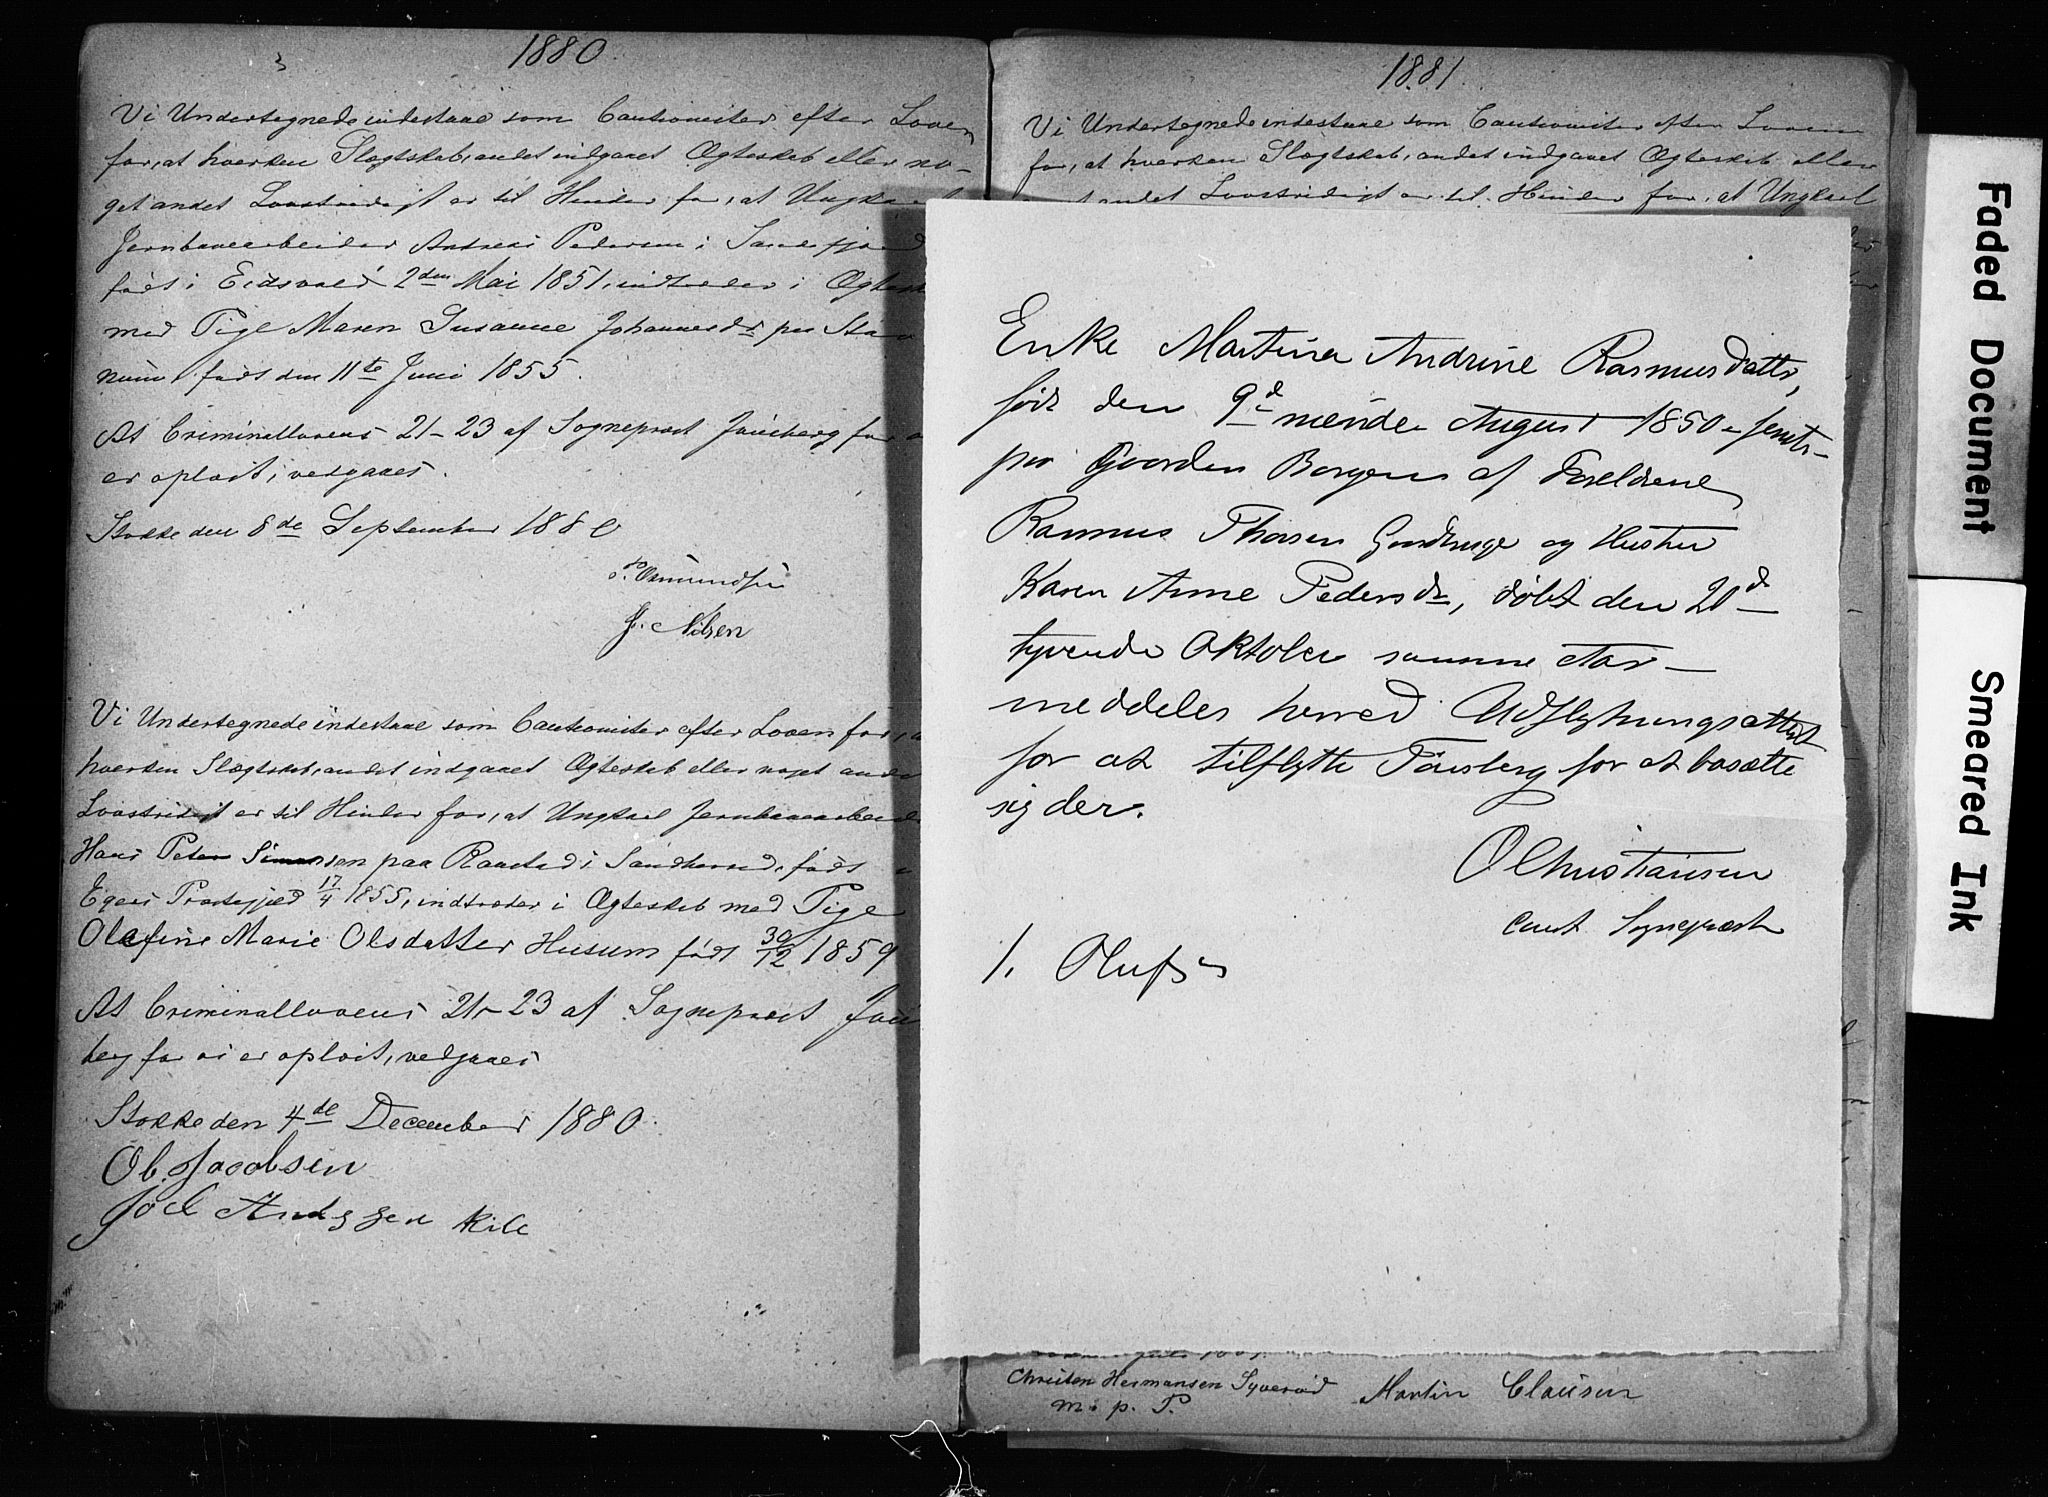 1880.
Vi Undertegnede indestaae som Cautionister efter Loven
for, at hverken Slægtskab, andet indgaaet Ægteskab eller no-
get andet Lovstridigt er til Hinder for, at Ungka
Jernbanearbeider Andreas Pedersen i Sandefjord
født i Eidsvold 2den Mai 1851, indtræder i Ægtesk
med Pige Maren Susanne Johannesdr paa Sta
født den 11te Juni 1855.
At Criminallovens 21-23 af Sognepræst Faüeberg for
er oplæst, vedgaaes.
Stokke den 8de September 188
Osmundsen
J. Nilsen
Vi Undertegnede indestaae som Cautionister efter Loven for, a
hverken Slægtskab, andet indgaaet Ægteskab eller noget ande
Lovstridigt er til Hinder for, at Ungkarl Jernbanearbeid
Hans Peter Simensen paa Raastad i Sandherred, født
Egers Præstegjæld 17/4 1855, indtræder i Ægteskab med Pige
Olefine Marie Olsdatter Husum født 30/12 1859
At Criminallovens 21-23 af Sognepræst Faüe
berg for os er oplæst, vedgaaes
Stokke den 4de December 1880.
Ob. Jacobsen
Joel Andssen Kile
1881.
Vi Undertegnede indestaae som Cautionister efter Loven
for, at hverken Slægtskab, andet indgaaet Ægteskab eller
andet Lovstridigt er til Hinder for, at Ungkarl
Enke Martina Andrine Rasmusdattr,
født den 9d niende August 1850 femti-
paa Gaarden Borgen af Forældrene
Rasmus Thorsen og Hustru
Karen Anne Pedersdr, døbt den 20d
tyvende Oktober samme Aar -
meddeles herved Udflytningsattest
for at tilflytte Tönsberg for at bosætte
sig der.
O Christiansen
const. Sognepræst
/. Olufsen
Christen Hermansen Syverød
m. p. P.
Martin Clausen
Faded Document
Smeared Ink